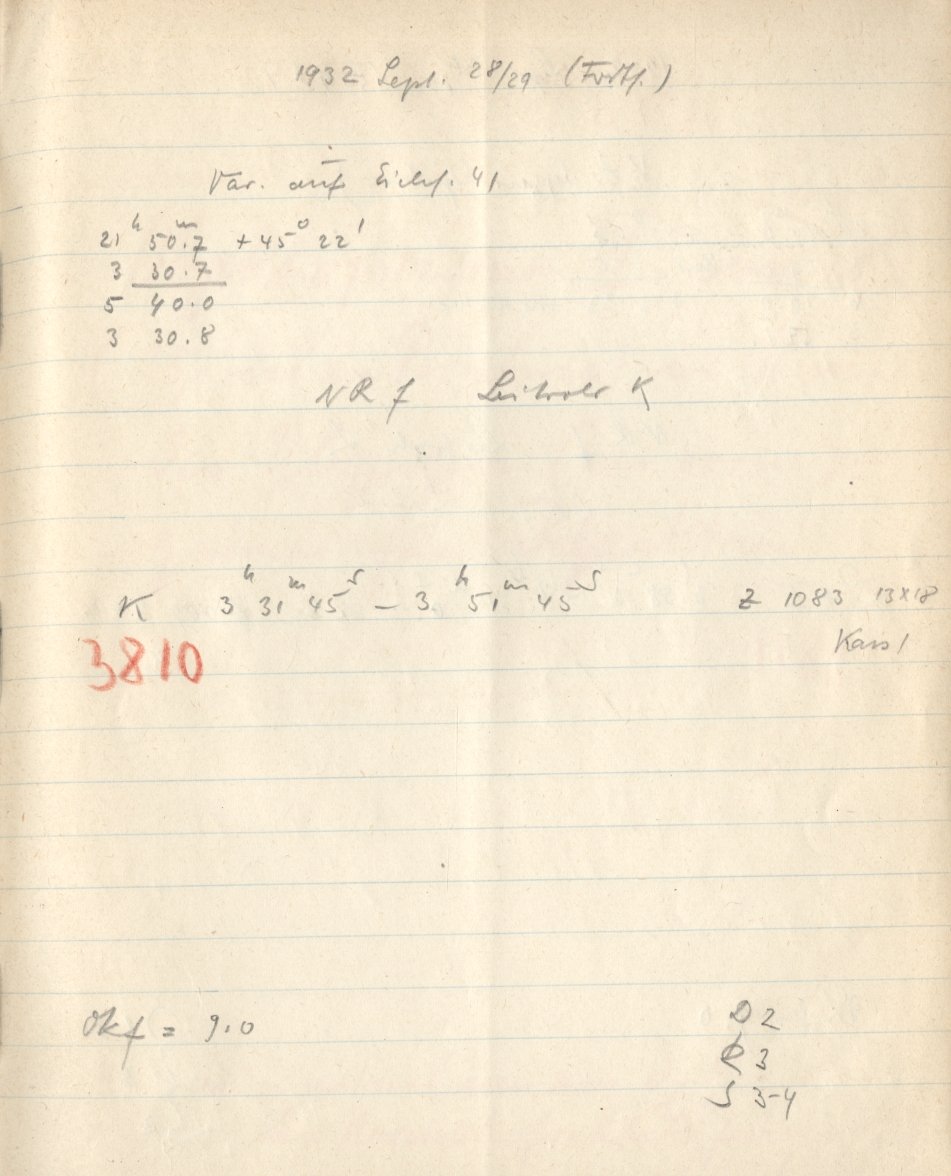 1932 Sept. 28/29 (Forts.)
Var. auf Eichf. 41
21ʰ 50ᵐ.7 +45° 22'
3 30.7
5 40.0
3 30.8
NR f K
K 3ʰ 31ᵐ 45ˢ – 3ʰ 51ᵐ 45ˢ Z 1083 13x18
3810 Kass 1
Okf = 9.0
D 2
R 3
S 3-4